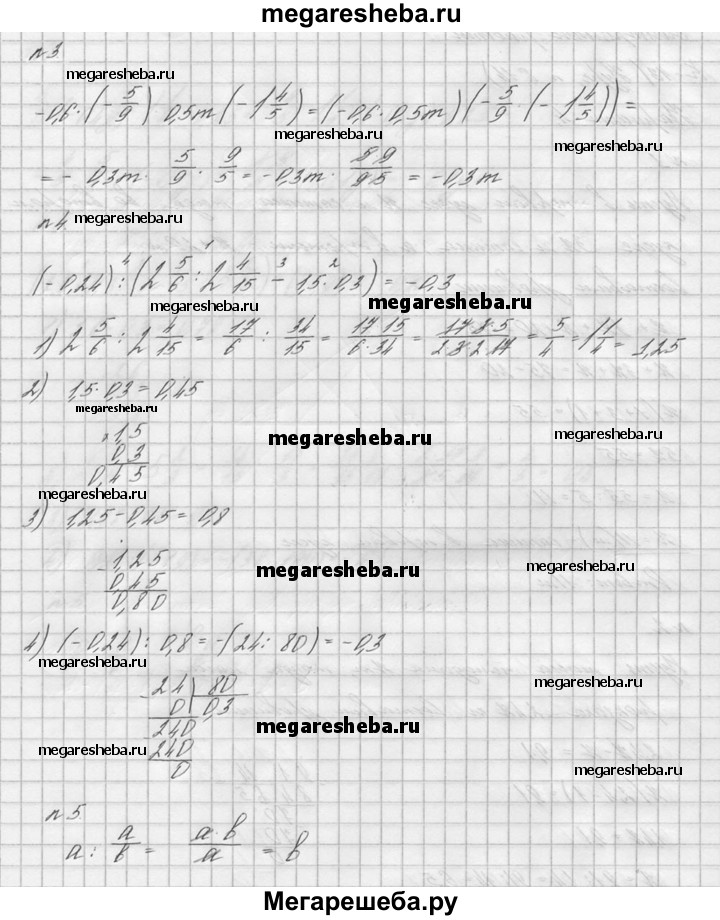 megaresheba.ru
n 3
megaresheba.ru
-0,6 · (-5/9) 0,5m (-1 4/5) = (-0,6 · 0,5m) (-5/9 · (-1 4/5)) =
megaresheba.ru
megaresheba.ru
= - 0,3m · 5/9 · 9/5 = -0,3m · 5 9/9 5 = -0,3m
n 4.
megaresheba.ru
(-0,24) :⁴ (2 5/6 :¹ 2 4/15 -³ 1,5 ·² 0,3) = -0,3
megaresheba.ru
megaresheba.ru
1) 2 5/6 : 2 4/15 = 17/6 : 34/15 = 17·15/6·34 = 17·3·5/2·3·2·17 = 5/4 = 1 1/4 = 1,25
2) 1,5 · 0,3 = 0,45
megaresheba.ru
× 1,5
0,3
0,45
megaresheba.ru
megaresheba.ru
megaresheba.ru
3) 1,25 - 0,45 = 0,8
- 1,25
0,45
0,80
megaresheba.ru
megaresheba.ru
4) (-0,24) : 0,8 = -(24 : 80) = -0,3
megaresheba.ru
- 24 | 80
0 | 0,3
240
240
0
megaresheba.ru
megaresheba.ru
megaresheba.ru
megaresheba.ru
n 5.
a : a/b = a · b/a = b
Мегарешеба.ру